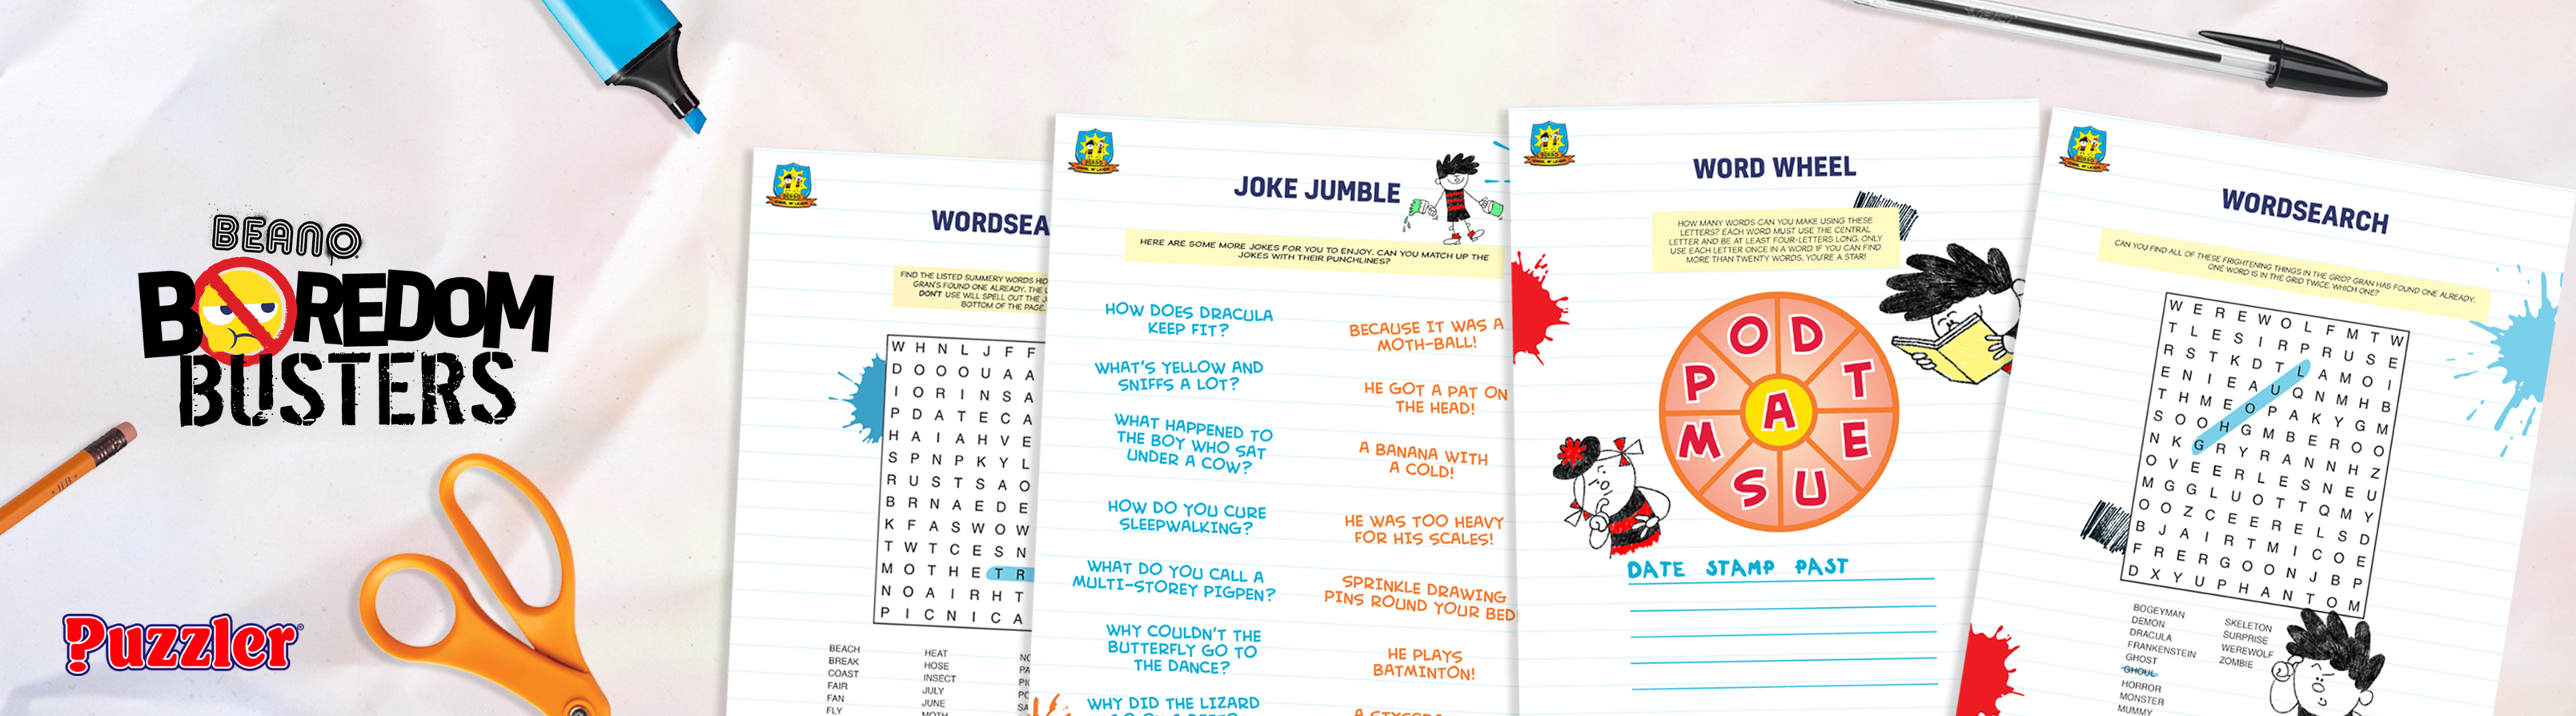 BEANO
BOREDOM
BUSTERS
Puzzler
WORDSEA
FIND THE LISTED SUMMERY WORDS HID
GRAN'S FOUND ONE ALREADY. THE L
DON'T USE WILL SPELL OUT THE J
BOTTOM OF THE PAGE.
W H N L J F F
D O O O U A A
I O R I N S A
P D A T E C A
H A I A H V E
S P N P K Y L
R U S T S A O
B R N A E D E
K F A S W O W
T W T C E S N
M O T H E T R
N O A I R H T
P I C N I C A
BEACH
BREAK
COAST
FAIR
FAN
FLY
HEAT
HOSE
INSECT
JULY
JUNE
MOTH
JOKE JUMBLE
HERE ARE SOME MORE JOKES FOR YOU TO ENJOY. CAN YOU MATCH UP THE
JOKES WITH THEIR PUNCHLINES?
HOW DOES DRACULA
KEEP FIT?
WHAT'S YELLOW AND
SNIFFS A LOT?
WHAT HAPPENED TO
THE BOY WHO SAT
UNDER A COW?
HOW DO YOU CURE
SLEEPWALKING?
WHAT DO YOU CALL A
MULTI-STOREY PIGPEN?
WHY COULDN'T THE
BUTTERFLY GO TO
THE DANCE?
WHY DID THE LIZARD
BECAUSE IT WAS A
MOTH-BALL!
HE GOT A PAT ON
THE HEAD!
A BANANA WITH
A COLD!
HE WAS TOO HEAVY
FOR HIS SCALES!
SPRINKLE DRAWING
PINS ROUND YOUR BED!
HE PLAYS
BATMINTON!
WORD WHEEL
HOW MANY WORDS CAN YOU MAKE USING THESE
LETTERS? EACH WORD MUST USE THE CENTRAL
LETTER AND BE AT LEAST FOUR-LETTERS LONG. ONLY
USE EACH LETTER ONCE IN A WORD. IF YOU CAN FIND
MORE THAN TWENTY WORDS, YOU'RE A STAR!
O D
P T
A
M E
S U
DATE STAMP PAST
WORDSEARCH
CAN YOU FIND ALL OF THESE FRIGHTENING THINGS IN THE GRID? GRAN HAS FOUND ONE ALREADY.
ONE WORD IS IN THE GRID TWICE. WHICH ONE?
W E R E W O L F M T W
T L E S I R P R U S E
R S T K D T L A M O I
E N I E A U Q N M H B
T H M E O P A K Y G M
S O O H G M B E R O O
N K G R Y R A N N H Z
O V E E R L E S N E U
M G G L U O T T Q M Y
O O Z C E E R E L S D
B J A I R T M I C O E
F R E R G O O N J B P
D X Y U P H A N T O M
BOGEYMAN
DEMON
DRACULA
FRANKENSTEIN
GHOST
GHOUL
HORROR
MONSTER
MUMMY
SKELETON
SURPRISE
WEREWOLF
ZOMBIE